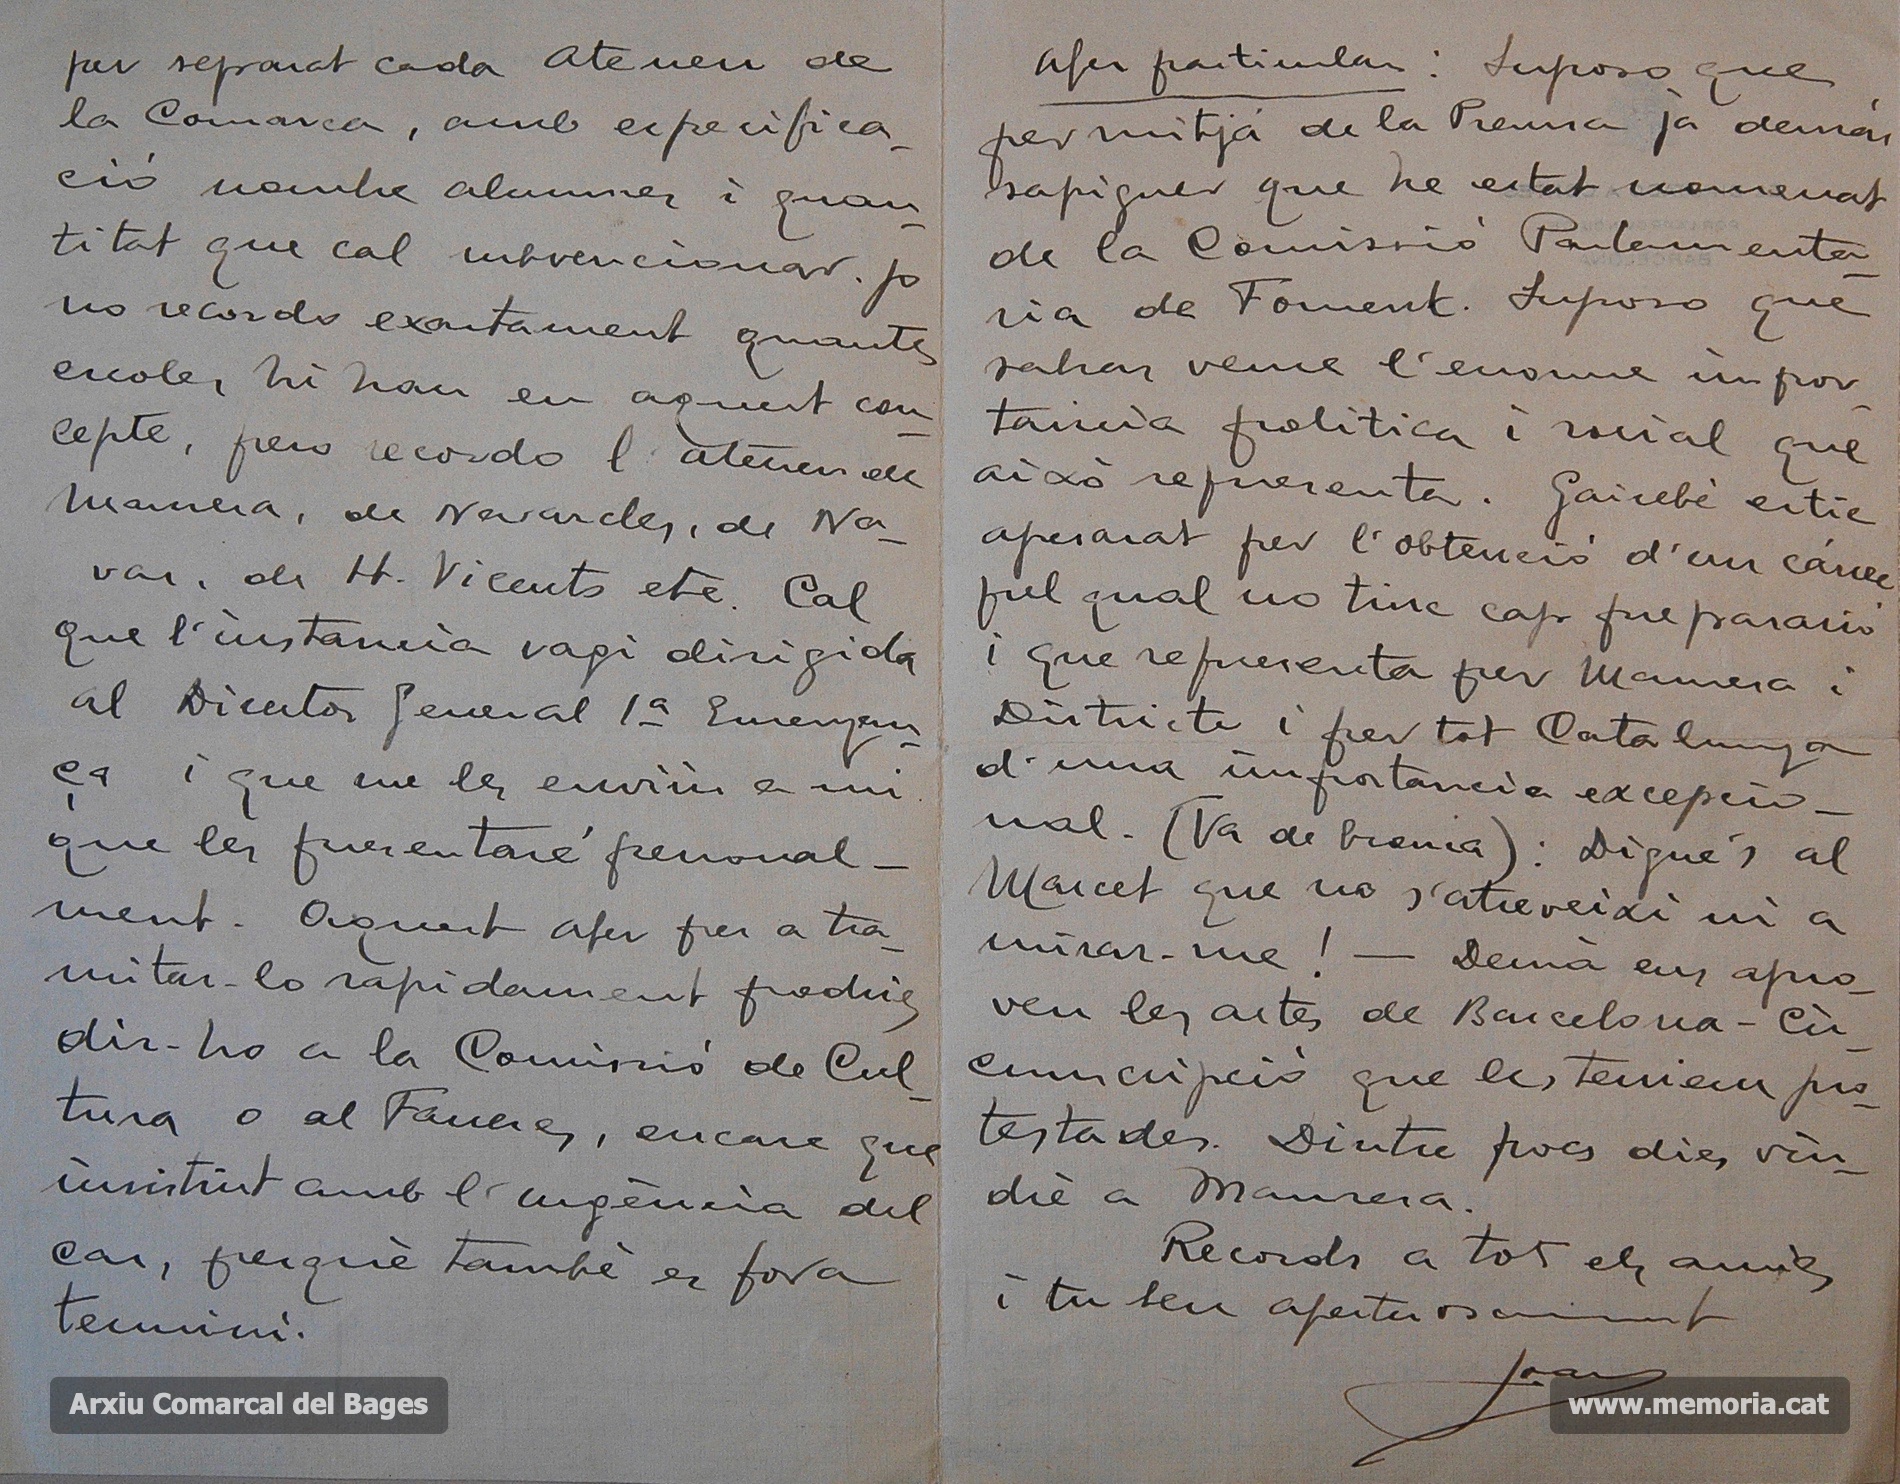 per separat cada Ateneu de
la Comarca, amb especifica-
ció nombre alumnes i quan-
titat que cal subvencionar. Jo
no recordo exactament quantes
escoles hi han en aquest con-
cepte, pero recordo l'ateneu de
Manresa, de Navarcles, de Na-
vas, de St. Vicents etc. Cal
que l'instancia vagi dirigida
al Director General 1ª Ensenyan-
ça i que me les enviin a mi
que les presentaré personal-
ment. Aquest afer per a tra-
mitar-lo rapidament podries
dir-ho a la Comissió de Cul-
tura o al Fañeres, encare que
insistint amb l'urgència del
cas, perquè també es fora
termini.
Afer particular: Suposo que
per mitjá de la Prensa ja demás
sapiguer que he estat nomenat
de la Comissió Parlamenta-
ria de Foment. Suposo que
sabras veure l'enorme impor-
tancia politica i social que
aixó representa. Gairebé estic
apesarat per l'obtenció d'un cárrec
pel qual no tinc cap preparació
i que representa per Manresa i
Districte i per tot Catalunya
d'una importancia excepcio-
nal. (Va de broma): Digue's al
Marcet que no s'atreveixi ni a
mirar-me! — Demà ens apro-
ven les actes de Barcelona-Cir-
cumscripció que les teniem pro-
testades. Dintre pocs dies vin-
dré a Manresa.
Records a tot els amics
i tu seu afectuosament
Joan
Arxiu Comarcal del Bages
www.memoria.cat